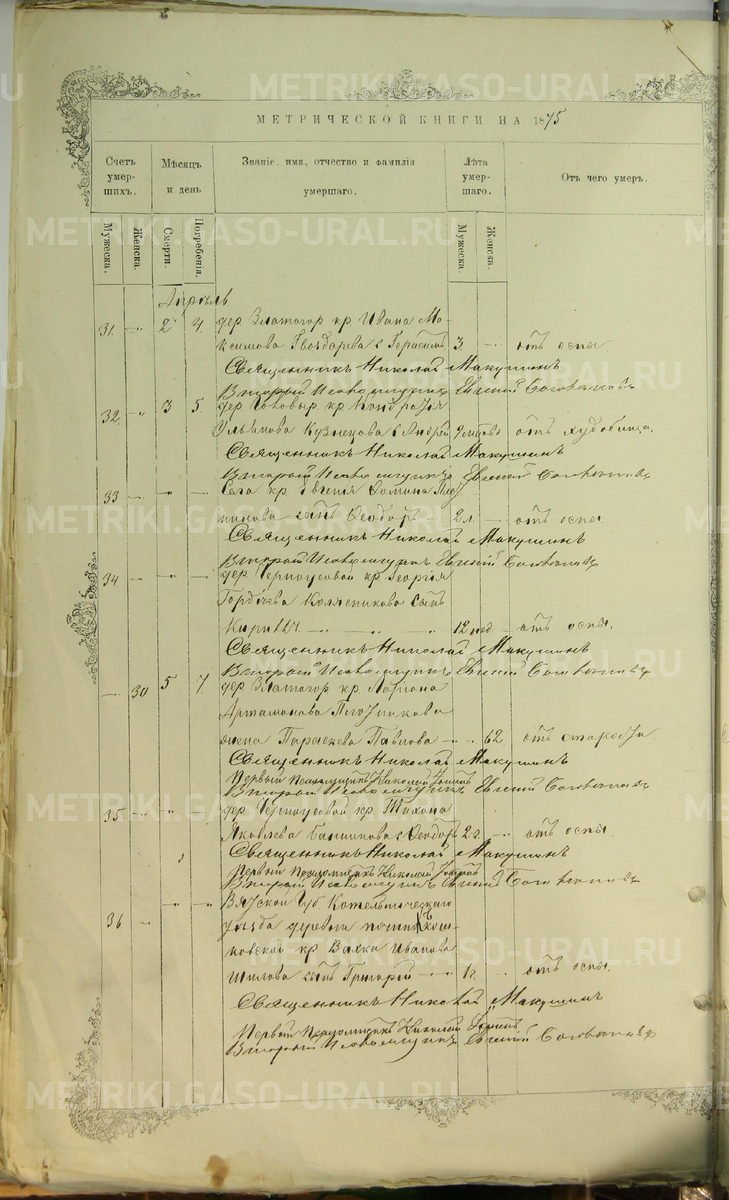 МЕТРИЧЕСКОЙ КНИГИ НА 1875
Счетъ умер- шихъ.
Мѣсяцъ и день
Званіе, имя, отчество и фамилія умершаго.
Лѣта умер- шаго.
Отъ чего умеръ.
Мужеска. Женска. Смерти. Погребенія. Мужеска. Женска.
Апрѣль
31. - 2 4. дер Златогор кр Ивана Ма-
ксимова Гвоздарева с Герасимъ 3. - отъ оспы
Священникъ Николай Макушинъ
Вторый Псаломщикъ Евгеній
32. - 3 5 дер кр Кондратія
Ульянова Кузнецова с Андрей 9 отъ худобища.
Священникъ Николай Макушинъ
Вторый Псаломщикъ Евгеній
33 - " - Села кр Евгенія Фомина
сынъ Ѳеодоръ - 2 л. - отъ оспы.
Священникъ Николай Макушинъ
Вторый Псаломщикъ Евгеній
34. - " - дер Черноусовой кр Георгія
Гордѣева Колясникова сынъ
Кириллъ - - - 12 нед. - отъ оспы.
Священникъ Николай Макушинъ
Вторый Псаломщикъ Евгеній
- 30 5 7 дер Златогор кр Ларіона
Артамонова Плотникова
жена Параскева Павлова - - 62 отъ старости.
Священникъ Николай Макушинъ
Первый Псаломщикъ Николай
Вторый Псаломщикъ Евгеній
35. - " " дер Черноусовой кр Тихона
Яковлева Банникова с Ѳеодоръ 2 г. - отъ оспы.
Священникъ Николай Макушинъ
Первый Псаломщикъ Николай
Вторый Псаломщикъ Евгеній
36 - " " Вятской Губ Котельническаго
уѣзда деревни починка
кр Ивана
Шилова сынъ Григорій - - 1 г. - отъ оспы.
Священникъ Николай Макушинъ
Первый Псаломщикъ Николай
Вторый Псаломщикъ Евгеній
METRIKI.GASO-URAL.RU